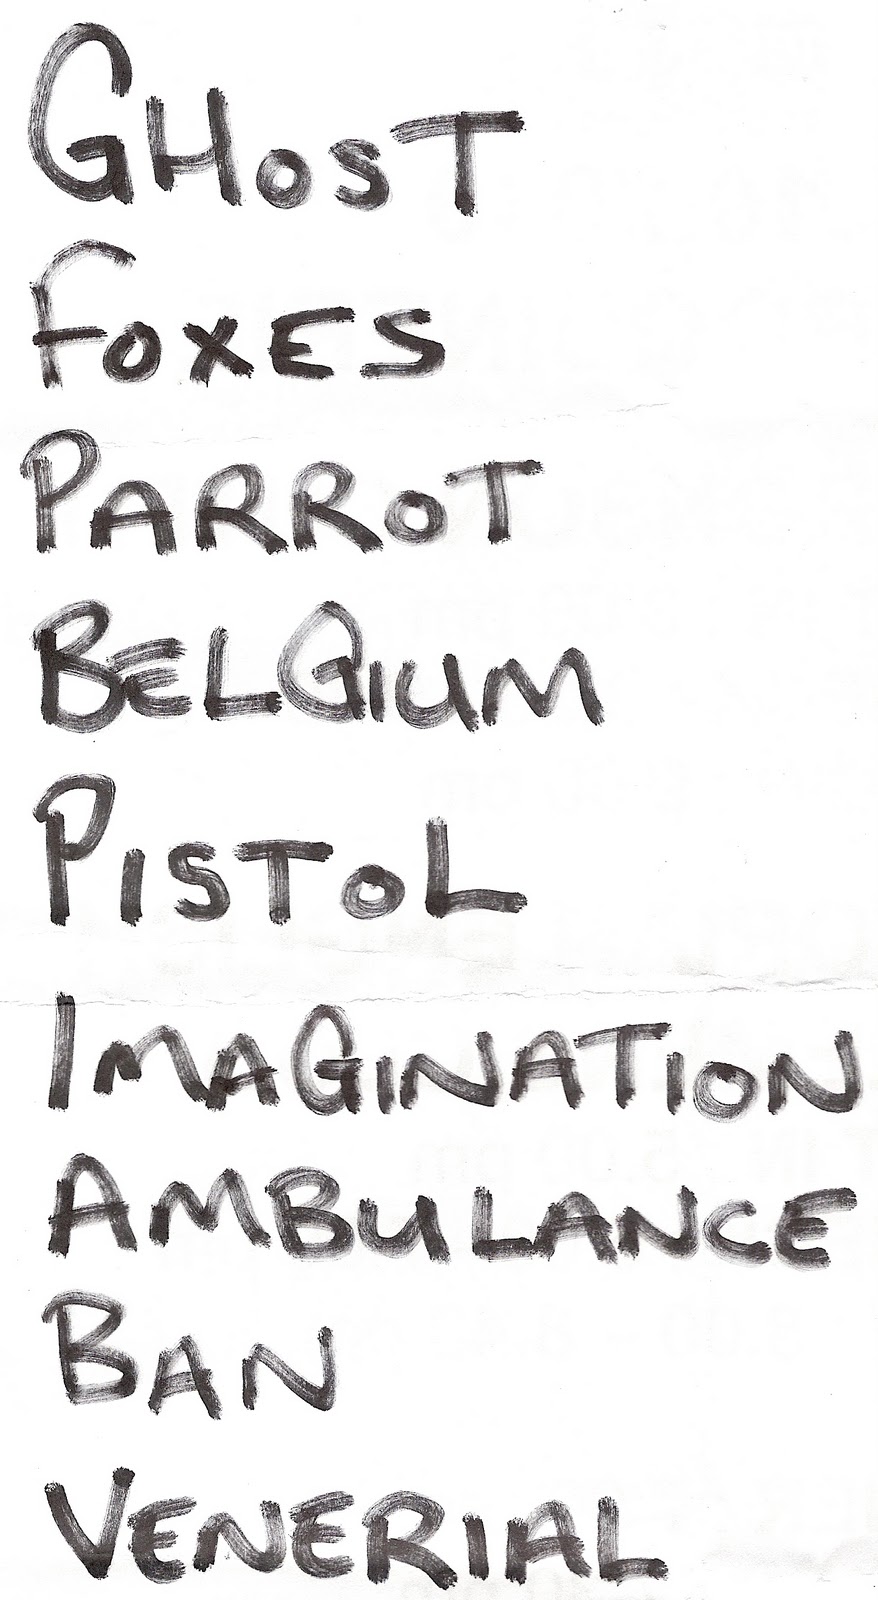 GHOST
FOXES
PARROT
BELGIUM
PISTOL
IMAGINATION
AMBULANCE
BAN
VENERIAL